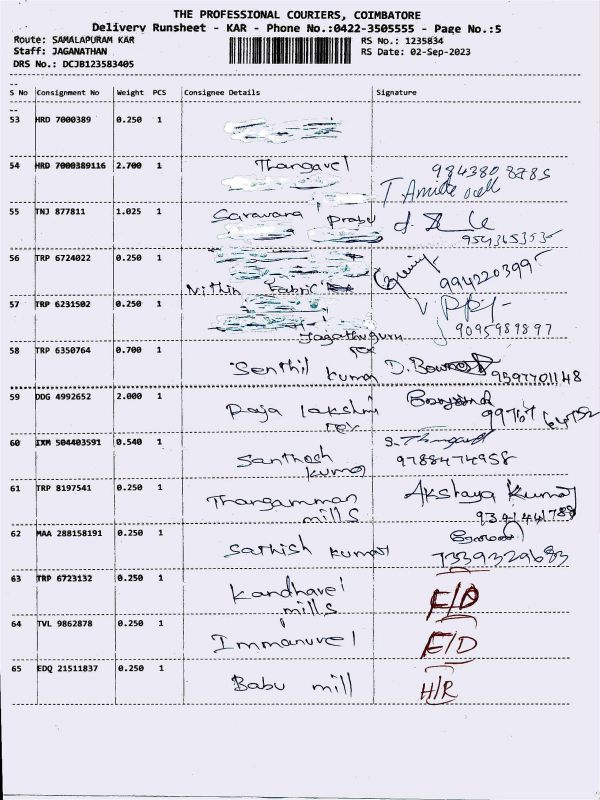 THE PROFESSIONAL COURIERS, COIMBATORE
Delivery Runsheet - KAR - Phone No.:0422-3505555 - Page No.:5
Route: SAMALAPURAM KAR RS No.: 1235834
Staff: JAGANATHAN RS Date: 02-Sep-2023
DRS No.: DCJB123583405
S No Consignment No Weight PCS Consignee Details Signature
53 HRD 7000389 0.250 1
54 HRD 7000389116 2.700 1 Thangavel
55 TNJ 877811 1.025 1 Saravana Prabu
9543653535
56 TRP 6724022 0.250 1
Nithin Fabric 9942203995
57 TRP 6231502 0.250 1
Jagathguru Tex 9095989897
58 TRP 6350764 0.700 1
Senthil kumar 9597701148
59 DDG 4992652 2.000 1
Raja lakshmi Tex 99767
60 IXM 504403591 0.540 1
Santhosh kumar 9788474958
61 TRP 8197541 0.250 1 Akshaya Kumar
Thangamman mills
62 MAA 288158191 0.250 1
Sathish kumar 7339329683
63 TRP 6723132 0.250 1
Kandhavel mills F/D
64 TVL 9862878 0.250 1
Immanuvel F/D
65 EDQ 21511837 0.250 1
Babu mill H/R